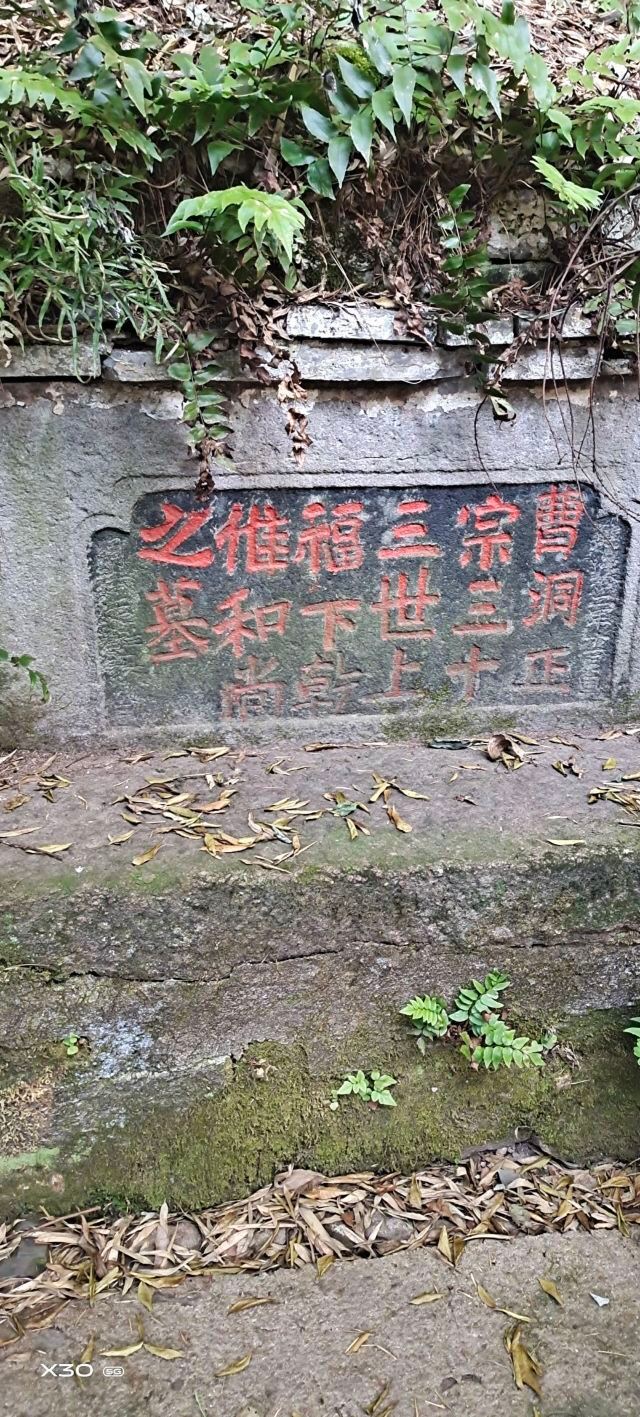 曹洞正
宗三十
三世上
福下乾
惟和尚
之墓
X30 5G